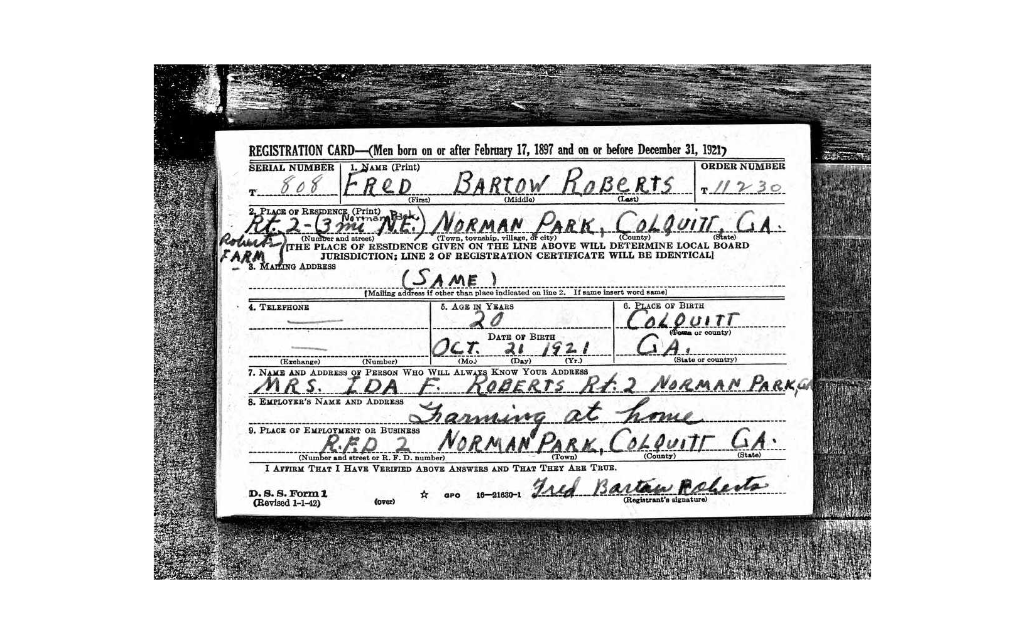 REGISTRATION CARD—(Men born on or after February 17, 1897 and on or before December 31, 1921)
SERIAL NUMBER 1. NAME (Print) ORDER NUMBER
T 808 FRED BARTOW ROBERTS T 11230
(First) (Middle) (Last)
2. PLACE OF RESIDENCE (Print) Norman Park
Rt. 2-(3 mi N.E.) NORMAN PARK, COLQUITT, GA.
(Number and street) (Town, township, village, or city) (County) (State)
Roberts FARM
[THE PLACE OF RESIDENCE GIVEN ON THE LINE ABOVE WILL DETERMINE LOCAL BOARD
JURISDICTION; LINE 2 OF REGISTRATION CERTIFICATE WILL BE IDENTICAL]
3. MAILING ADDRESS
(SAME)
[Mailing address if other than place indicated on line 2. If same insert word same]
4. TELEPHONE 5. AGE IN YEARS 6. PLACE OF BIRTH
— 20 COLQUITT
DATE OF BIRTH (Town or county)
— OCT. 21 1921 GA.
(Exchange) (Number) (Mo.) (Day) (Yr.) (State or country)
7. NAME AND ADDRESS OF PERSON WHO WILL ALWAYS KNOW YOUR ADDRESS
MRS. IDA F. ROBERTS Rt. 2 NORMAN PARK, GA
8. EMPLOYER'S NAME AND ADDRESS
Farming at home
9. PLACE OF EMPLOYMENT OR BUSINESS
R.F.D 2 NORMAN PARK, COLQUITT GA.
(Number and street or R. F. D. number) (Town) (County) (State)
I AFFIRM THAT I HAVE VERIFIED ABOVE ANSWERS AND THAT THEY ARE TRUE.
D. S. S. Form 1
(Revised 1-1-42) (over) ☆ GPO 16—21630-1 Fred Bartow Roberts
(Registrant's signature)